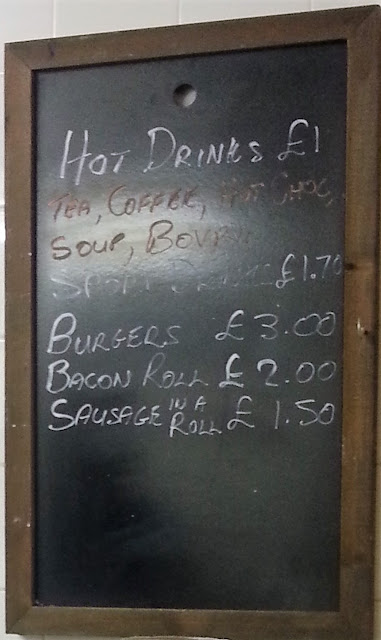 HOT DRINKS £1
TEA, COFFEE, HOT CHOC,
SOUP, BOVRIL
SPORT DRINKS £1.70
BURGERS £3.00
BACON ROLL £2.00
SAUSAGE IN A ROLL £1.50